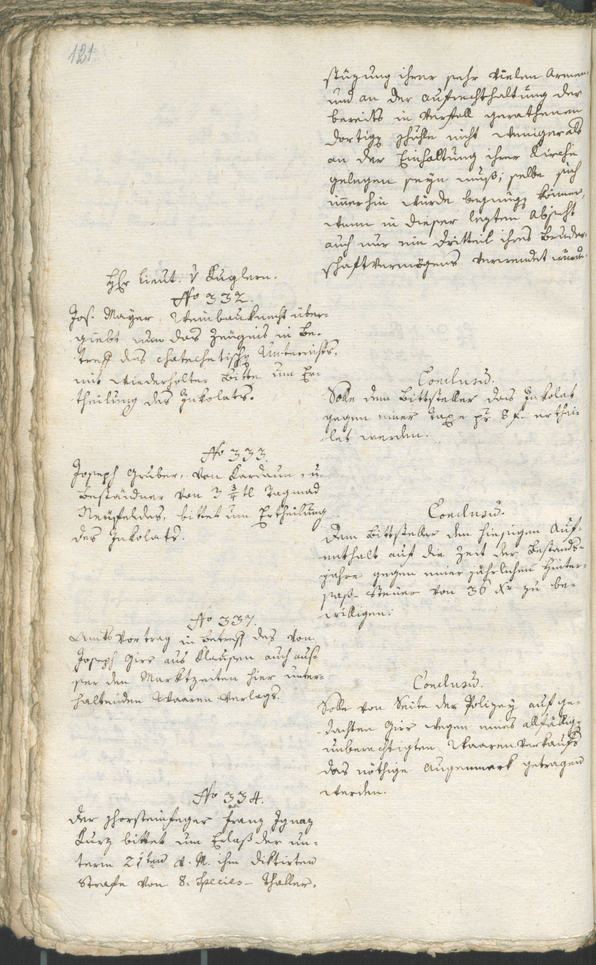 121.
stüzung ihrer sehr vielen Armen
und an der Aufrechthaltung der
bereits in Verfall gerathenen
dortigen Schule nicht weniger als
an der Einhaltung ihrer Kirche
gelegen seyn muß; selbe sich
immerhin würde begnügen können,
wenn in dieser lezten Absicht
auch nur ein Dritteil ihres Bruder-
schaftvermögens verwendet wurde.
Hr Lieut. v Kuglern.
No 332.
Jos. Mayer, Weinbauknecht über-
giebt nun das Zeugnis in Be-
treff des chatechetischen Unterrichts,
mit wiederholter Bitte um Er-
theilung des Inkolats.
Conclusum.
Solle dem Bittsteller das Inkolat
gegen einer Taxe pr 8 f. erthei-
let werden.
No 333.
Joseph Gruber, von Kardaun u
Beständner von 3 tl Tagmad
Neufeldes, bittet um Ertheilung
des Inkolats.
Conclusum.
Dem Bittsteller den hiesigen Auf-
enthalt auf die Zeit der Bestands-
jahre gegen einer jährlichen Hinter-
saß-Steuer von 36 Xr zu be-
willigen.
No 337.
Amtsvortrag in Betreff des von
Joseph Girr aus Klausen auch aus-
ser den Marktzeiten hier unter-
haltenden Waaren Verlags.
Conclusum.
Solle von Seite der Polizey auf ge-
dachten Girr wegen eines allfälligen
unberechtigten Waarenverkaufs
das nöthige Augenmerk getragen
werden.
No 334.
Der Schorsteinfeger Franz Ignaz
Kurz bittet um Erlaß der un-
term 21ten ihm diktirten
Strafe von 8. Species-Thaller.